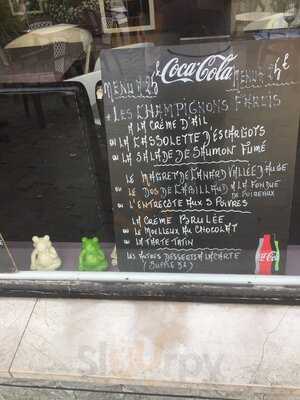 Coca-Cola
MENU MENU
+ LES CHAMPIGNONS FARCIS
A LA CRÈME D'AIL
OU LA CASSOLETTE D'ESCARGOTS
OU LA SALADE DE SAUMON FUMÉ
LE MAGRET DE CANARD VALLÉE D'AUGE
OU LE DOS DE CABILLAUD A LA FONDUE
DE POIREAUX
OU L'ENTRECÔTE AUX 5 POIVRES
LA CREME BRULÉE
OU LE MOELLEUX AU CHOCOLAT
OU LA TARTE TATIN
LES AUTRES DESSERTS A LA CARTE